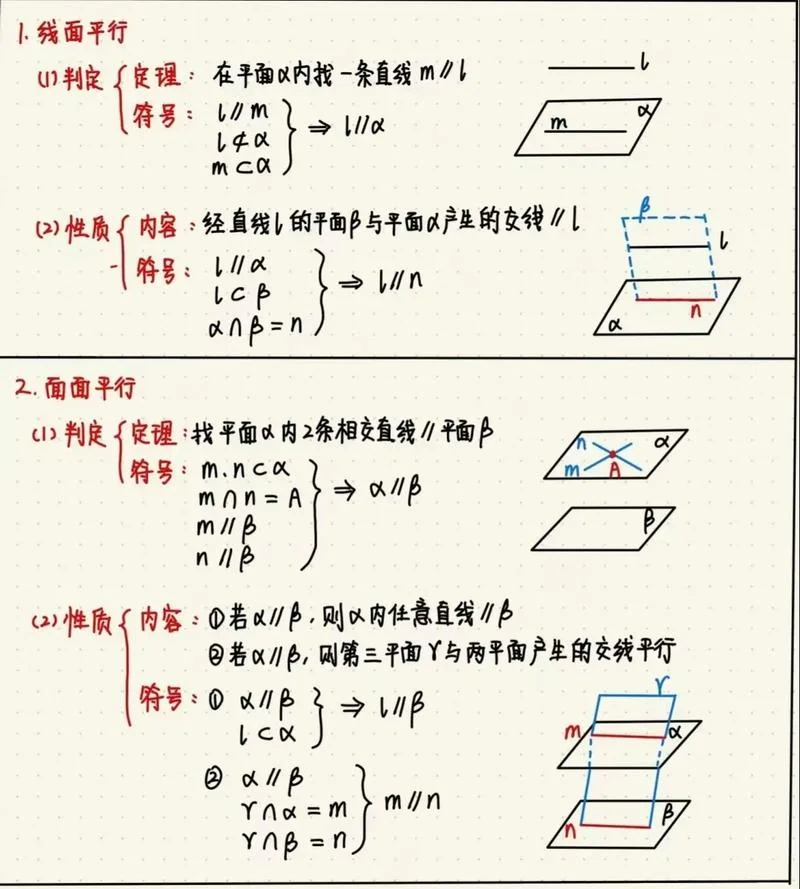 1. 线面平行
(1) 判定 { 定理： 在平面α内找一条直线 m∥l
符号： l∥m
l⊄α
m⊂α } ⇒ l∥α
l
α
m
(2) 性质 { 内容：经直线l的平面β与平面α产生的交线∥l
符号： l∥α
l⊂β
α∩β=n } ⇒ l∥n
β
l
n
α
2. 面面平行
(1) 判定 { 定理：找平面α内2条相交直线∥平面β
符号： m.n⊂α
m∩n=A
m∥β
n∥β } ⇒ α∥β
n α
m A
β
(2) 性质 { 内容：①若α∥β，则α内任意直线∥β
②若α∥β，则第三平面γ与两平面产生的交线平行
符号：① α∥β
l⊂α } ⇒ l∥β
② α∥β
γ∩α=m
γ∩β=n } m∥n
γ
m α
n β